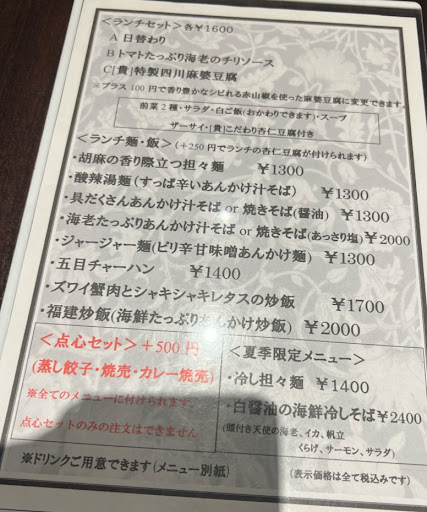 ＜ランチセット＞各￥1600
A 日替わり
B トマトたっぷり海老のチリソース
C[貴]特製四川麻婆豆腐
※プラス100円で香り豊かなシビれる赤山椒を使った麻婆豆腐に変更できます。
前菜2種・サラダ・白ご飯(おかわりできます)・スープ
ザーサイ・[貴]こだわり杏仁豆腐付き
＜ランチ麺・飯＞(+250円でランチの杏仁豆腐が付けられます)
・胡麻の香り際立つ担々麺 ￥1300
・酸辣湯麺(すっぱ辛いあんかけ汁そば) ￥1300
・具だくさんあんかけ汁そば or 焼きそば(醤油) ￥1300
・海老たっぷりあんかけ汁そば or 焼きそば(あっさり塩)￥2000
・ジャージャー麺(ピリ辛甘味噌あんかけ麺) ￥1300
・五目チャーハン ￥1400
・ズワイ蟹肉とシャキシャキレタスの炒飯 ￥1700
・福建炒飯(海鮮たっぷりあんかけ炒飯) ￥2000
＜点心セット＞＋500円
(蒸し餃子・焼売・カレー焼売)
※全てのメニューに付けられます。
点心セットのみの注文はできません
＜夏季限定メニュー＞
・冷し担々麺 ￥1400
・白醤油の海鮮冷しそば￥2400
(頭付き天使の海老、イカ、帆立
くらげ、サーモン、サラダ)
※ドリンクご用意できます(メニュー別紙)
(表示価格は全て税込みです)